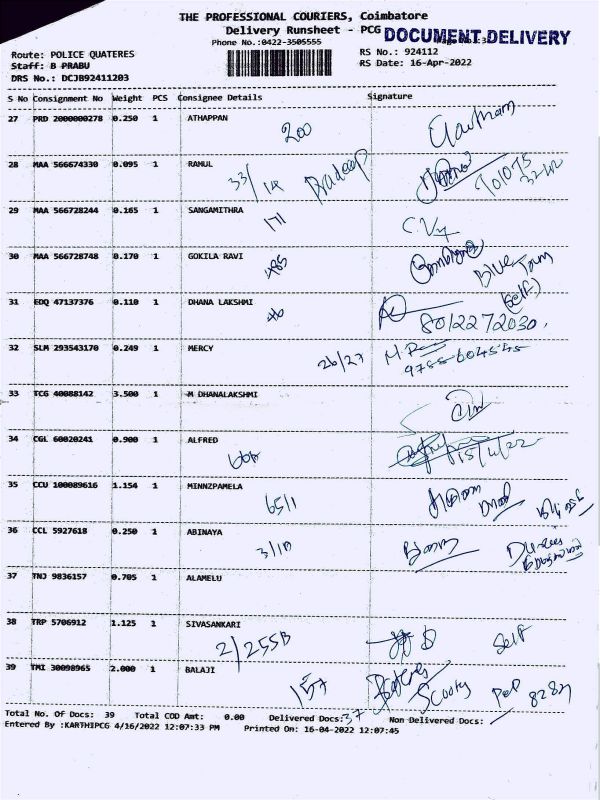 THE PROFESSIONAL COURIERS, Coimbatore
Delivery Runsheet - PCG
DOCUMENT DELIVERY
Phone No.:0422-3505555
Route: POLICE QUATERES
RS No.: 924112
Staff: B PRABU
RS Date: 16-Apr-2022
DRS No.: DCJB92411203
S No Consignment No Weight PCS Consignee Details Signature
27 PRD 2000000278 0.250 1 ATHAPPAN
200 Gautham
28 MAA 566674330 0.095 1 RAMUL
33/ Pradeep
29 MAA 566728244 0.165 1 SANGAMITHRA
171
30 MAA 566728748 0.170 1 GOKILA RAVI
485 Blue Town
31 EDQ 47137376 0.110 1 DHANA LAKSHMI
(Self)
8012272030.
32 SLM 293543170 0.249 1 MERCY
26/27
33 TCG 40088142 3.500 1 M DHANALAKSHMI
34 CGL 60020241 0.900 1 ALFRED
15/4/22
35 CCU 100089616 1.154 1 MINNZPAMELA
65/1
36 CCL 5927618 0.250 1 ABINAYA
3/10
37 TNJ 9836157 0.705 1 ALAMELU
38 TRP 5706912 1.125 1 SIVASANKARI
2/255B Self
39 TMI 30098965 2.000 1 BALAJI
157 Scooty
Total No. Of Docs: 39 Total COD Amt: 0.00 Delivered Docs: 37 Non Delivered Docs:
Entered By :KARTHIPCG 4/16/2022 12:07:33 PM Printed On: 16-04-2022 12:07:45